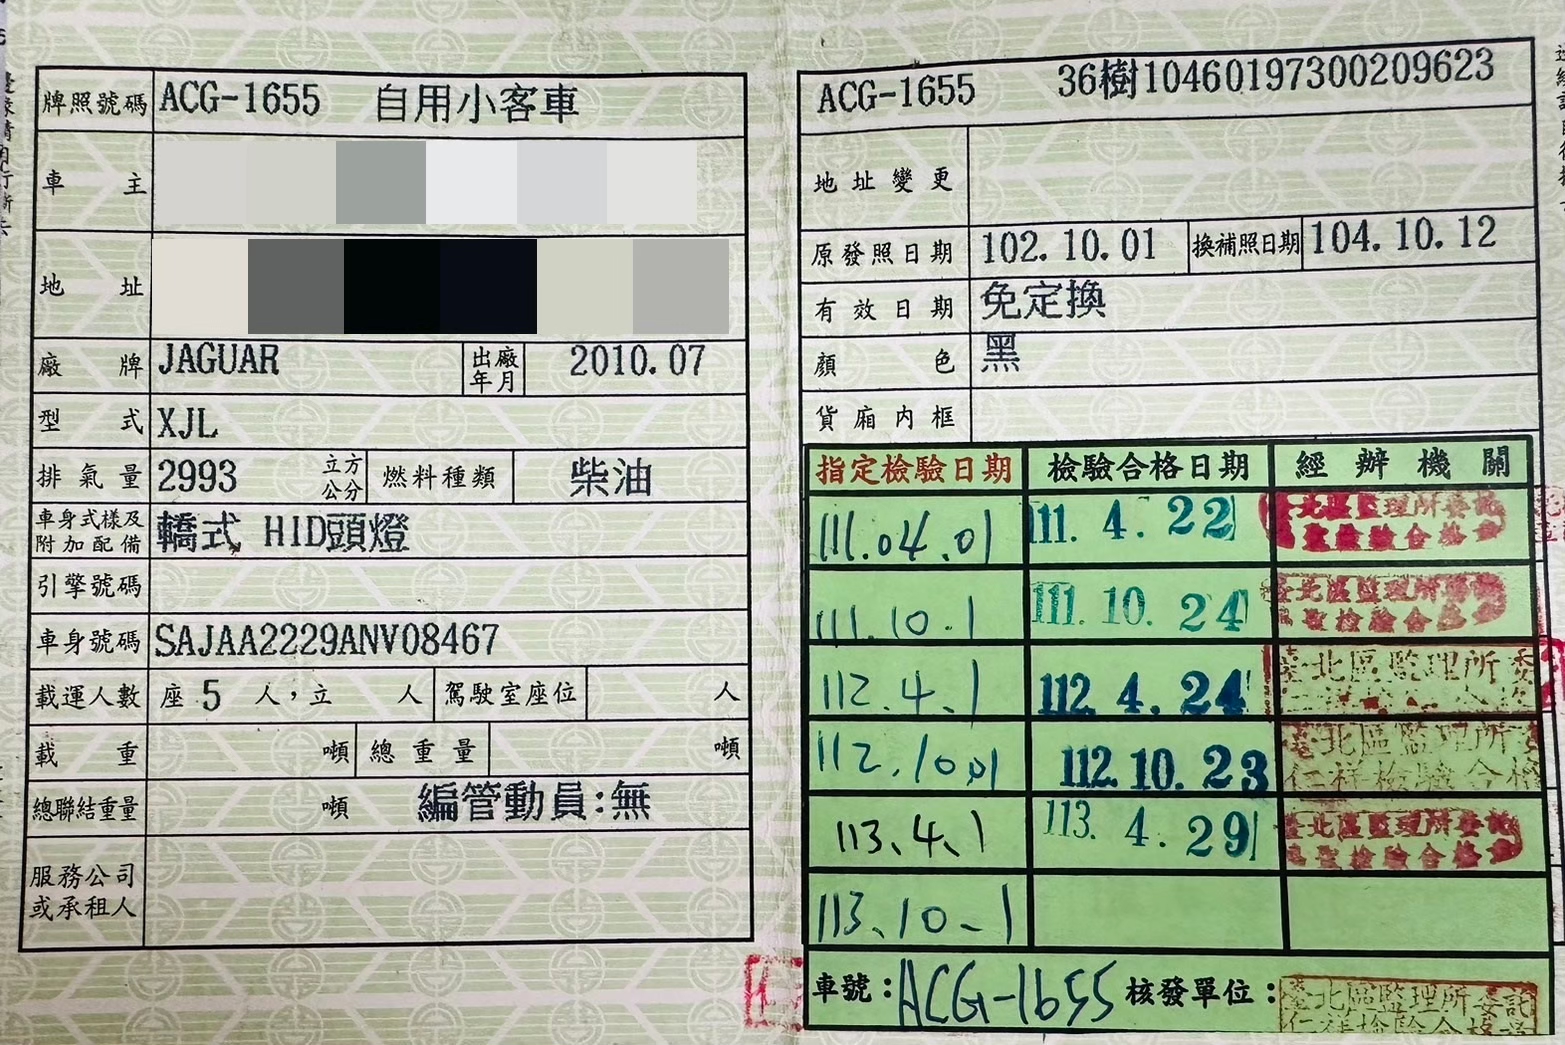 牌照號碼 ACG-1655 自用小客車
車主
地址
廠牌 JAGUAR 出廠年月 2010.07
型式 XJL
排氣量 2993 立方公分 燃料種類 柴油
車身式樣及附加配備 轎式 HID頭燈
引擎號碼
車身號碼 SAJAA2229ANV08467
載運人數 座 5 人,立 人 駕駛室座位 人
載重 噸 總重量 噸
總聯結重量 噸 編管動員:無
服務公司或承租人
ACG-1655 36樹10460197300209623
地址變更
原發照日期 102.10.01 換補照日期 104.10.12
有效日期 免定換
顏色 黑
貨廂內框
指定檢驗日期 檢驗合格日期 經辦機關
111.04.01 111.4.22 臺北區監理所委託
111.10.1 111.10.24 臺北區監理所
112.4.1 112.4.24 臺北區監理所委
112.10.01 112.10.23 臺北區監理所 仁祥檢驗合格
113.4.1 113.4.29 臺北區監理所委託
113.10.1
車號:ACG-1655 核發單位:臺北區監理所委託
仁祥檢驗合格